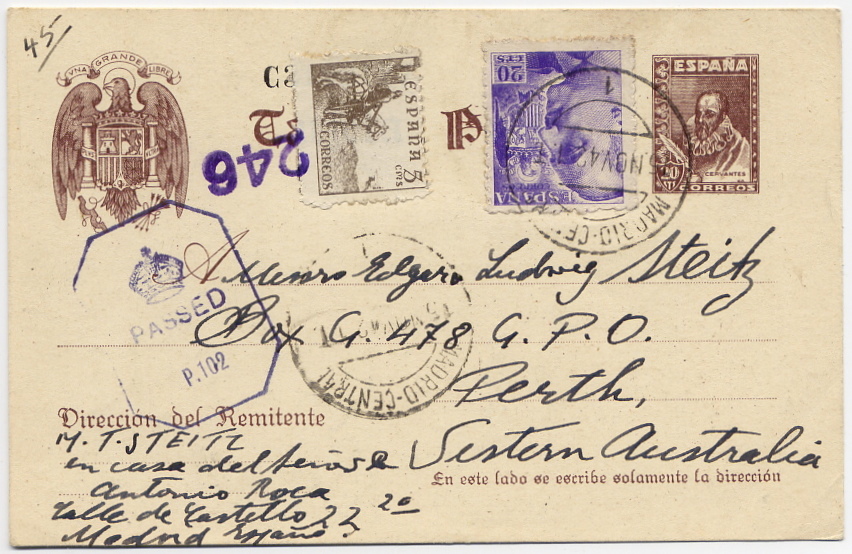 45
UNA GRANDE LIBRE
Ca
T
P
246
ESPAÑA 5 CTS
CORREOS
20 CTS
ESPAÑA
CORREOS
ESPAÑA
CERVANTES
20
CORREOS
1
5 NOV 42
MADRID-CENTRAL
PASSED
P.102
A Messrs Edgar Ludwig Steitz
Box G. 478 G. P. O.
Perth,
Western Australia
1
5 NOV 42
MADRID-CENTRAL
Dirección del Remitente
M. T. STEITZ
en casa del Señor
Antonio Roca
Calle de Castello 22 2º
Madrid España.
En este lado se escribe solamente la dirección